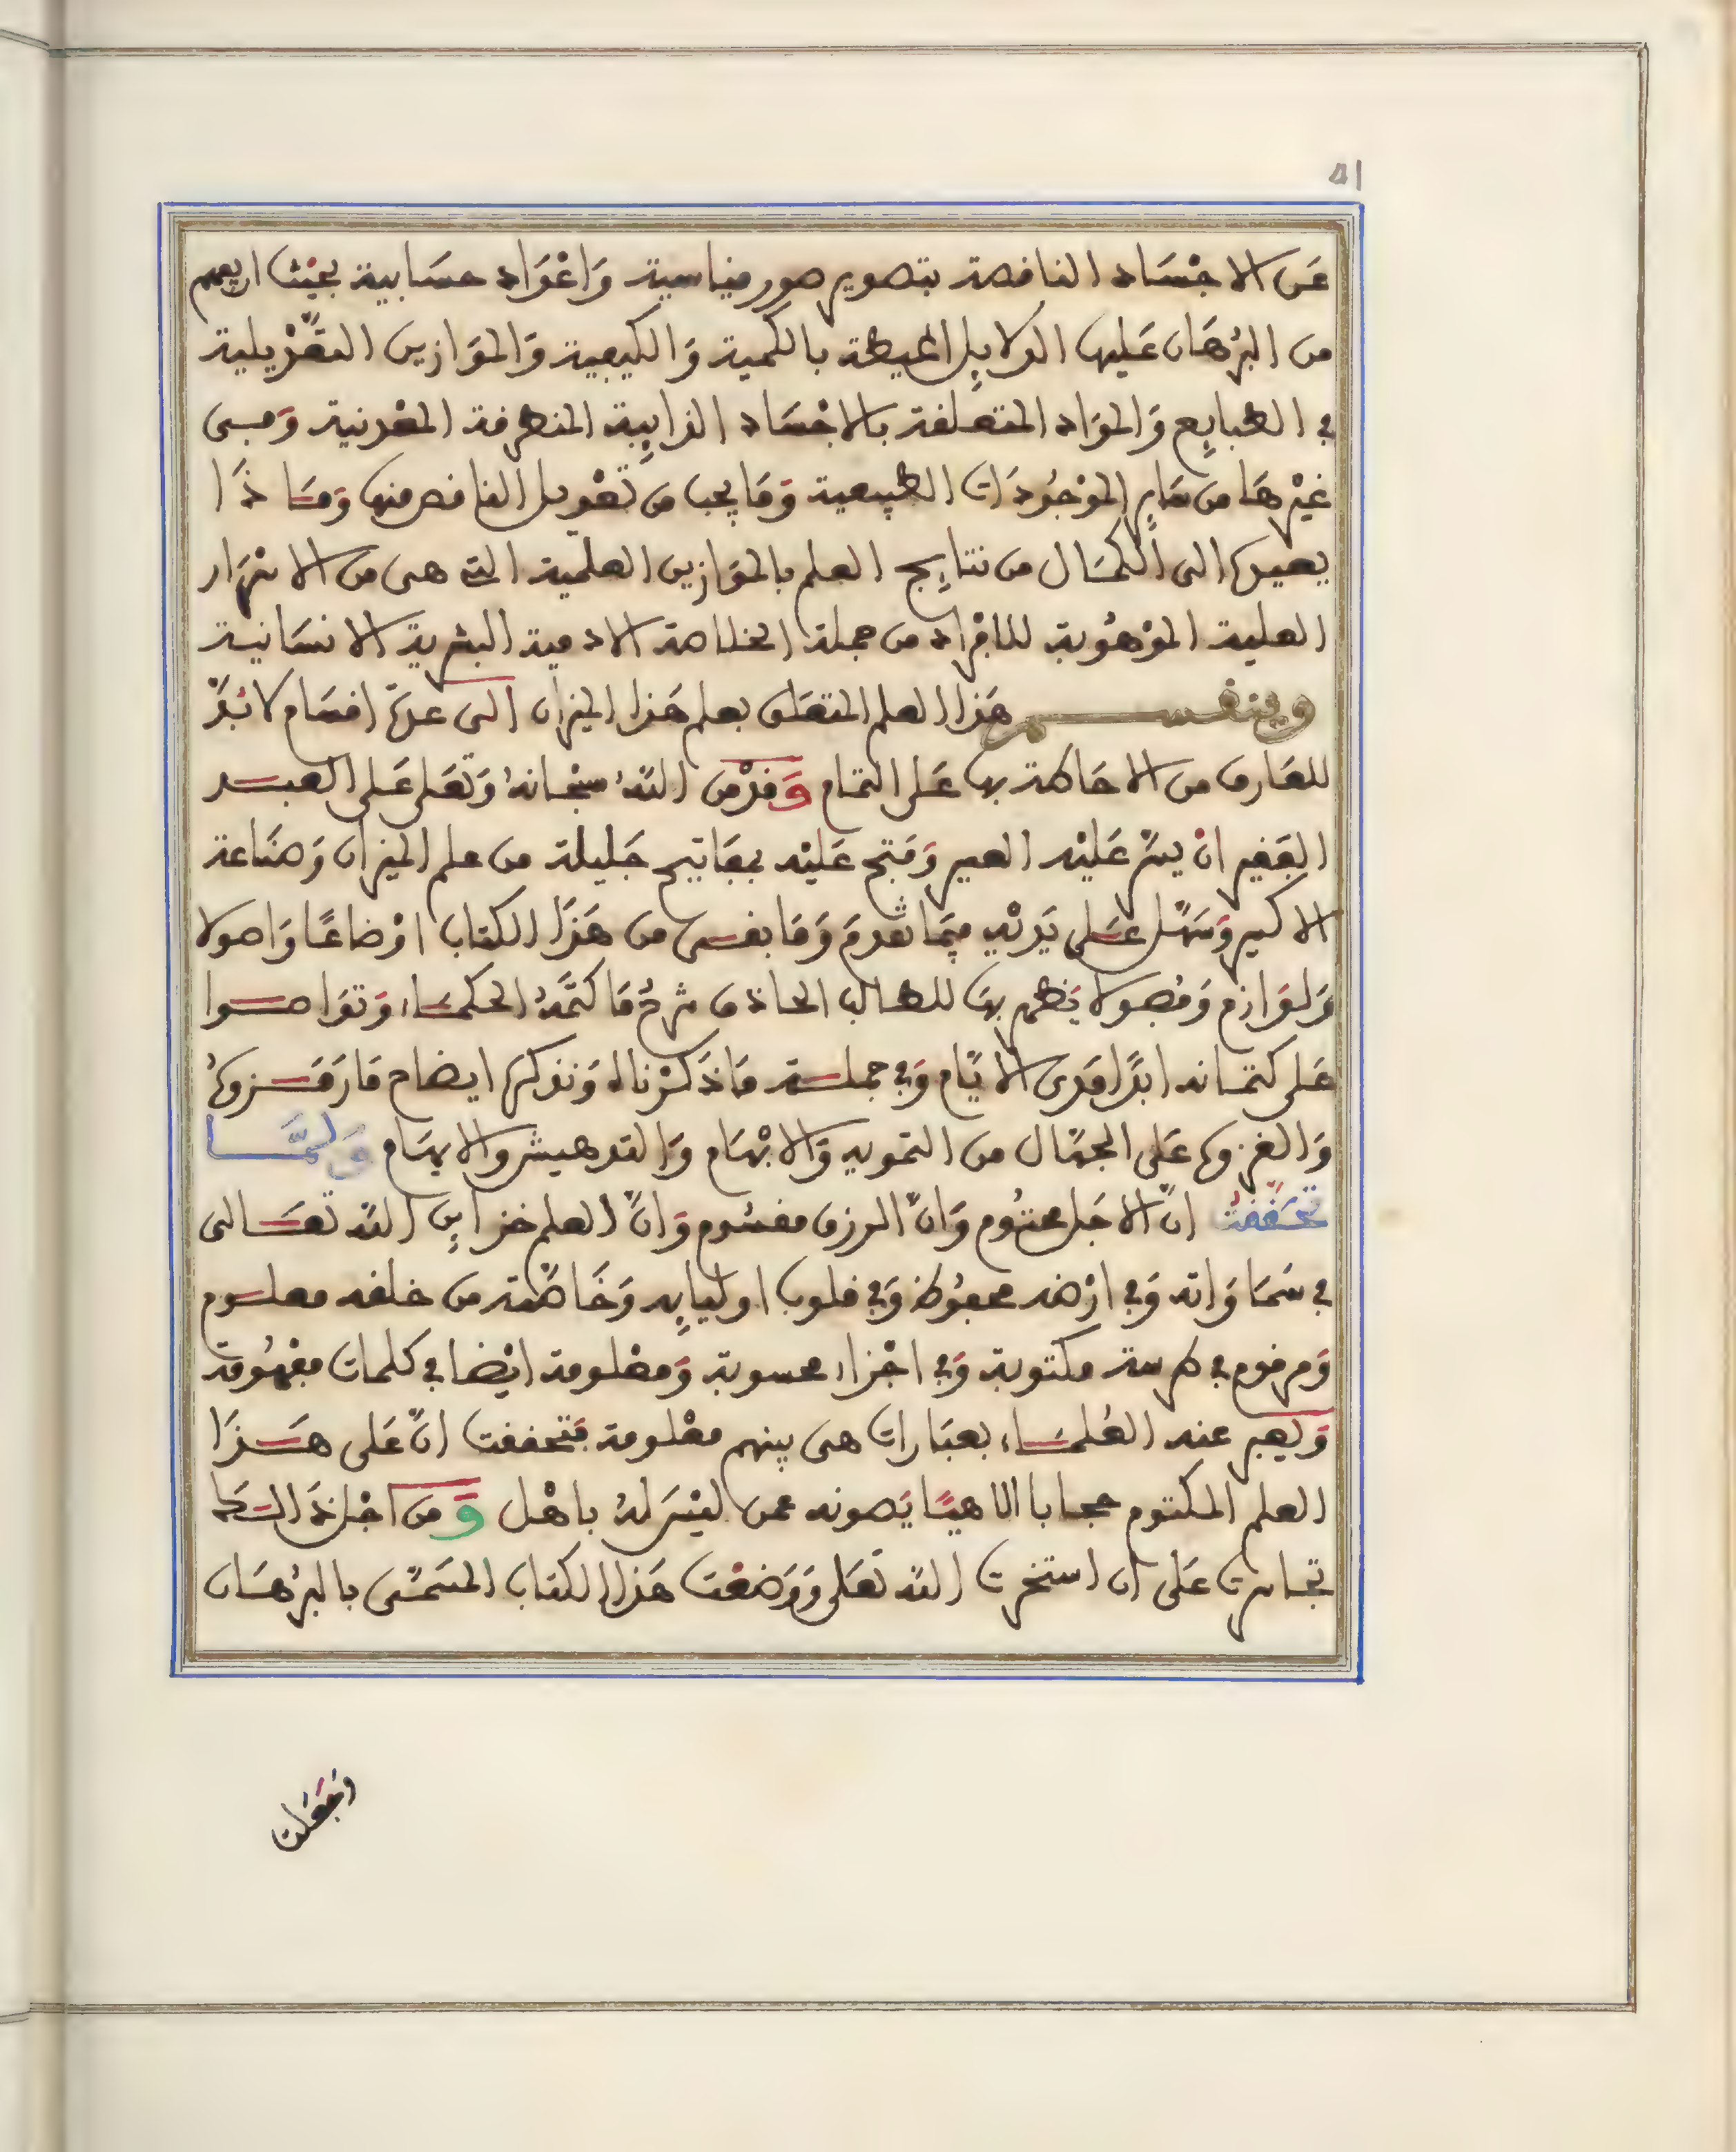 ٥١
عن الاجساد الناقصة بتصوير صور قياسية واعواد حسابية بحيث
من البرهان عليها الدلايل المحيطة بالكمية والكيفية والموازين التعديلية
في الطبايع والمواد المتعلقة بالاجساد الذايبة المنطرقة المعدنية وفي
غيرها من ساير الموجودات الطبيعية وما يجب من تعديل الناقص منها وماذا
يصيرها الى الكمال من نتايج العلم بالموازين العلمية التي هي من الاسرار
العلية الموهوبة للافراد من جملة الخلاصة الادمية البشرية الانسانية
وينقسم هذا العلم المتعلق بعلم هذا الميزان الى عدة اقسام لا بد
للعارف من الاحاطة بها على التمام وقد من الله سبحانه وتعلى على العبد
الفقير ان يسر عليه العسير وفتح عليه بمفاتيح جليلة من علم الميزان وصناعة
الاكسير وسهل على يديه فيما تقدم وما بقى من هذا الكتاب اوضاعا واصولا
ولوازم وفصولا يظهر بها للطالب الحاذق شرح ما كتمه الحكماء وتواصوا
على كتمانه ابدا مدى الايام وفي جملة ما ذكرناه ونذكره ايضاح ما رمزوه
والغزوه على الجهال من التمويه والابهام والتدهيش والايهام ولما
تحققت ان الاجل محتوم وان الرزق مقسوم وان العلم خزاين الله تعالى
في سماواته وفي ارضه محفوظ وفي قلوب اوليايه وخاصته من خلقه معلوم
ومرقوم في طرسة مكتوبة وفي اجزاء محسوبة ومعلومة ايضا في كلمات مفهومة
ويعبر عنه العلماء بعبارات هي بينهم معلومة فتحققت ان على هذا
العلم المكتوم حجابا الاهيا يصونه عمن ليس له باهل ومن اجل ذالك
تجاسرت على ان استخرت الله تعلى ووضعت هذا الكتاب المسمى بالبرهان
وجعلت